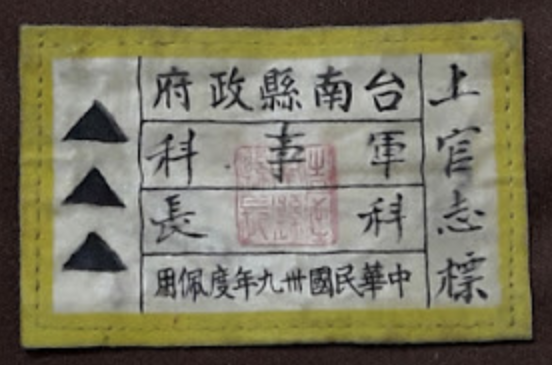 上官志標
台南縣政府
軍事科
科長
中華民國卅九年度佩用